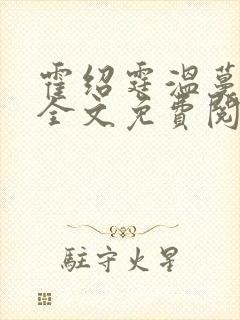 霍绍霆温蔓
全文免费阅
駐守火星